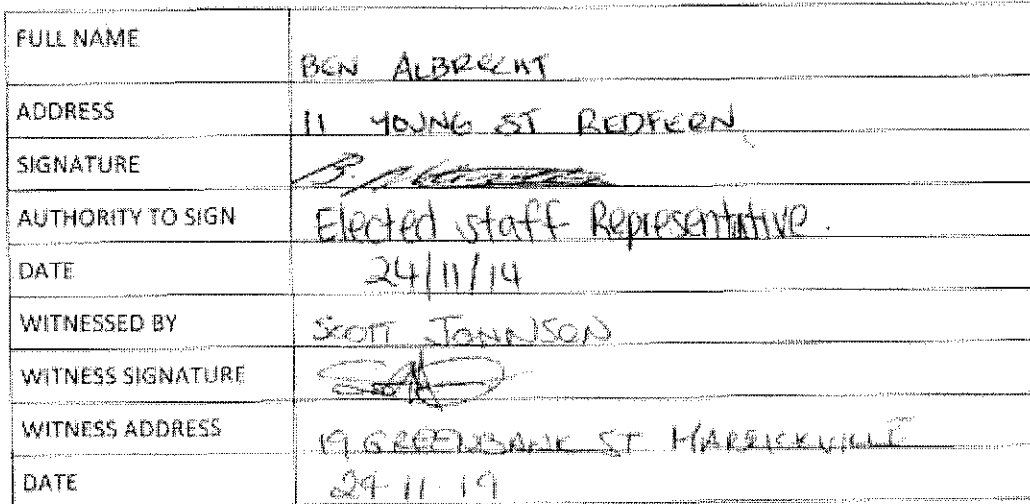 FULL NAME BEN ALBRECHT
ADDRESS 11 YOUNG ST REDFERN
SIGNATURE
AUTHORITY TO SIGN Elected staff Representative.
DATE 24/11/14
WITNESSED BY SCOTT JOHNSON
WITNESS SIGNATURE
WITNESS ADDRESS 19 GREENBANK ST MARRICKVILLE
DATE 24-11-14